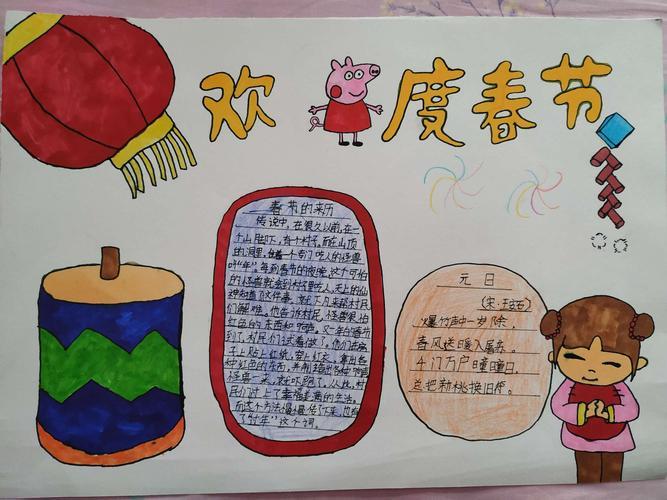 欢度春节
春节的来历
传说中，在很久以前，在一
个山脚下，有个村子，而在山顶
的洞里，住着一个专门吃人的怪兽
叫"年"每到春节的夜晚，这个可怕
的怪兽就会到村子里吃人，天上的山
神知道了这件事，就下凡来帮村民
们解难，他告诉村民，怪兽害怕
红色的东西和响声，又一年的春节
到了，村民们试着做了，他们在房
子上贴上红纸，穿上红衣，拿出各
种红色的东西，并制造出各种响声
怪兽一来，就吓跑了，从此，村
民们过上了幸福美满的生活。
而这个方法慢慢传了下来，也有
了"过年"这个词。
元日
(宋·王安石)
爆竹声中一岁除，
春风送暖入屠苏。
千门万户曈曈日，
总把新桃换旧符。